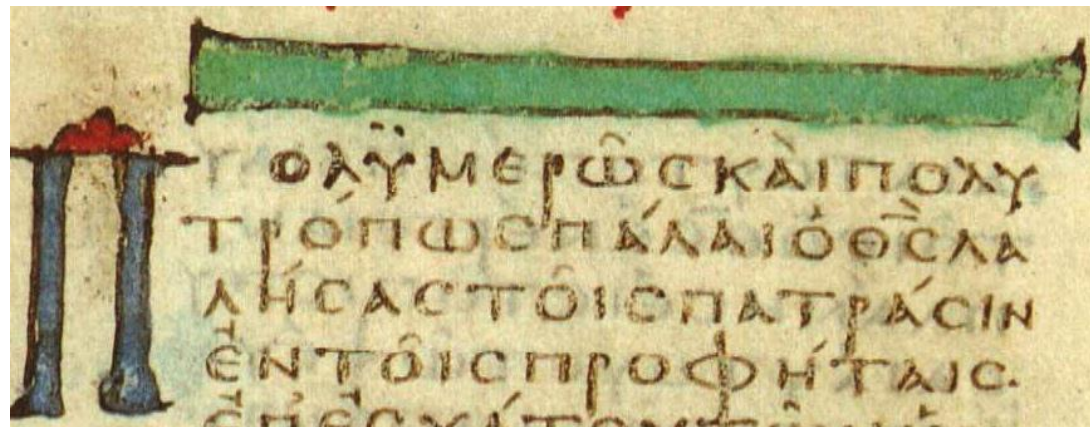 ΠΟΛΫΜΕΡΩ͂ϹΚΑῚΠΟΛΥ
ΤΡΌΠΩϹΠΆΛΑΙὉΘ̅Ϲ̅ΛΑ
ΛΉϹΑϹΤΟΙ͂ϹΠΑΤΡΆϹΙΝ
ΕΝΤΟΙ͂ϹΠΡΟΦΉΤΑΙϹ·